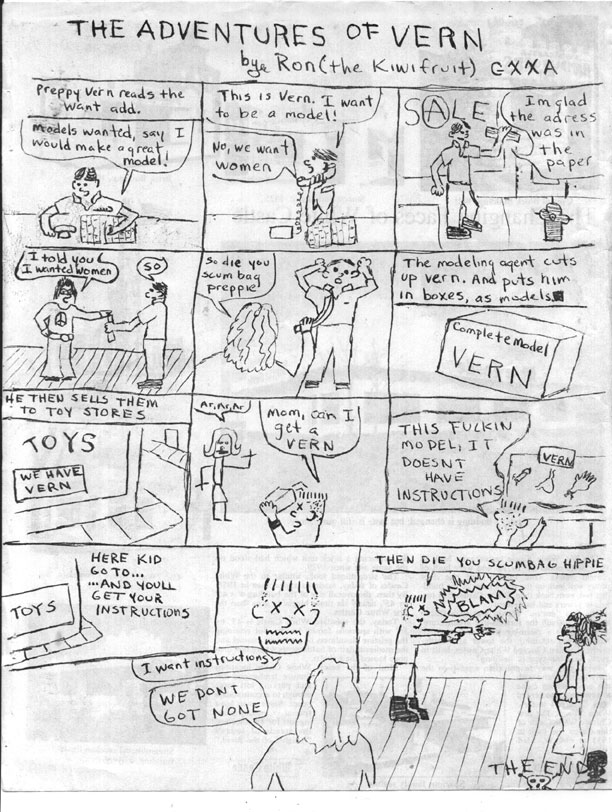 THE ADVENTURES OF VERN
by: Ron (the Kiwifruit) GXXA
Preppy Vern reads the
want add.
models wanted, say I
would make a great
model!
This is Vern. I want
to be a model!
No, we want
women
SALE
Im glad
the adress
was in
the
paper
I told you
I wanted women
SO
So die you
scum bag
preppie
The modeling agent cuts
up vern. And puts him
in boxes, as models
Complete model
VERN
HE THEN SELLS THEM
TO TOY STORES
TOYS
WE HAVE
VERN
Ar, Ar, Ar
Mom, can I
get a
VERN
THIS FUCKIN
MODEL, IT
DOESNT
HAVE
INSTRUCTIONS
VERN
TOYS
HERE KID
GO TO...
...AND YOULL
GET YOUR
INSTRUCTIONS
I want instructions
WE DONT
GOT NONE
THEN DIE YOU SCUMBAG HIPPIE
BLAM
THE END